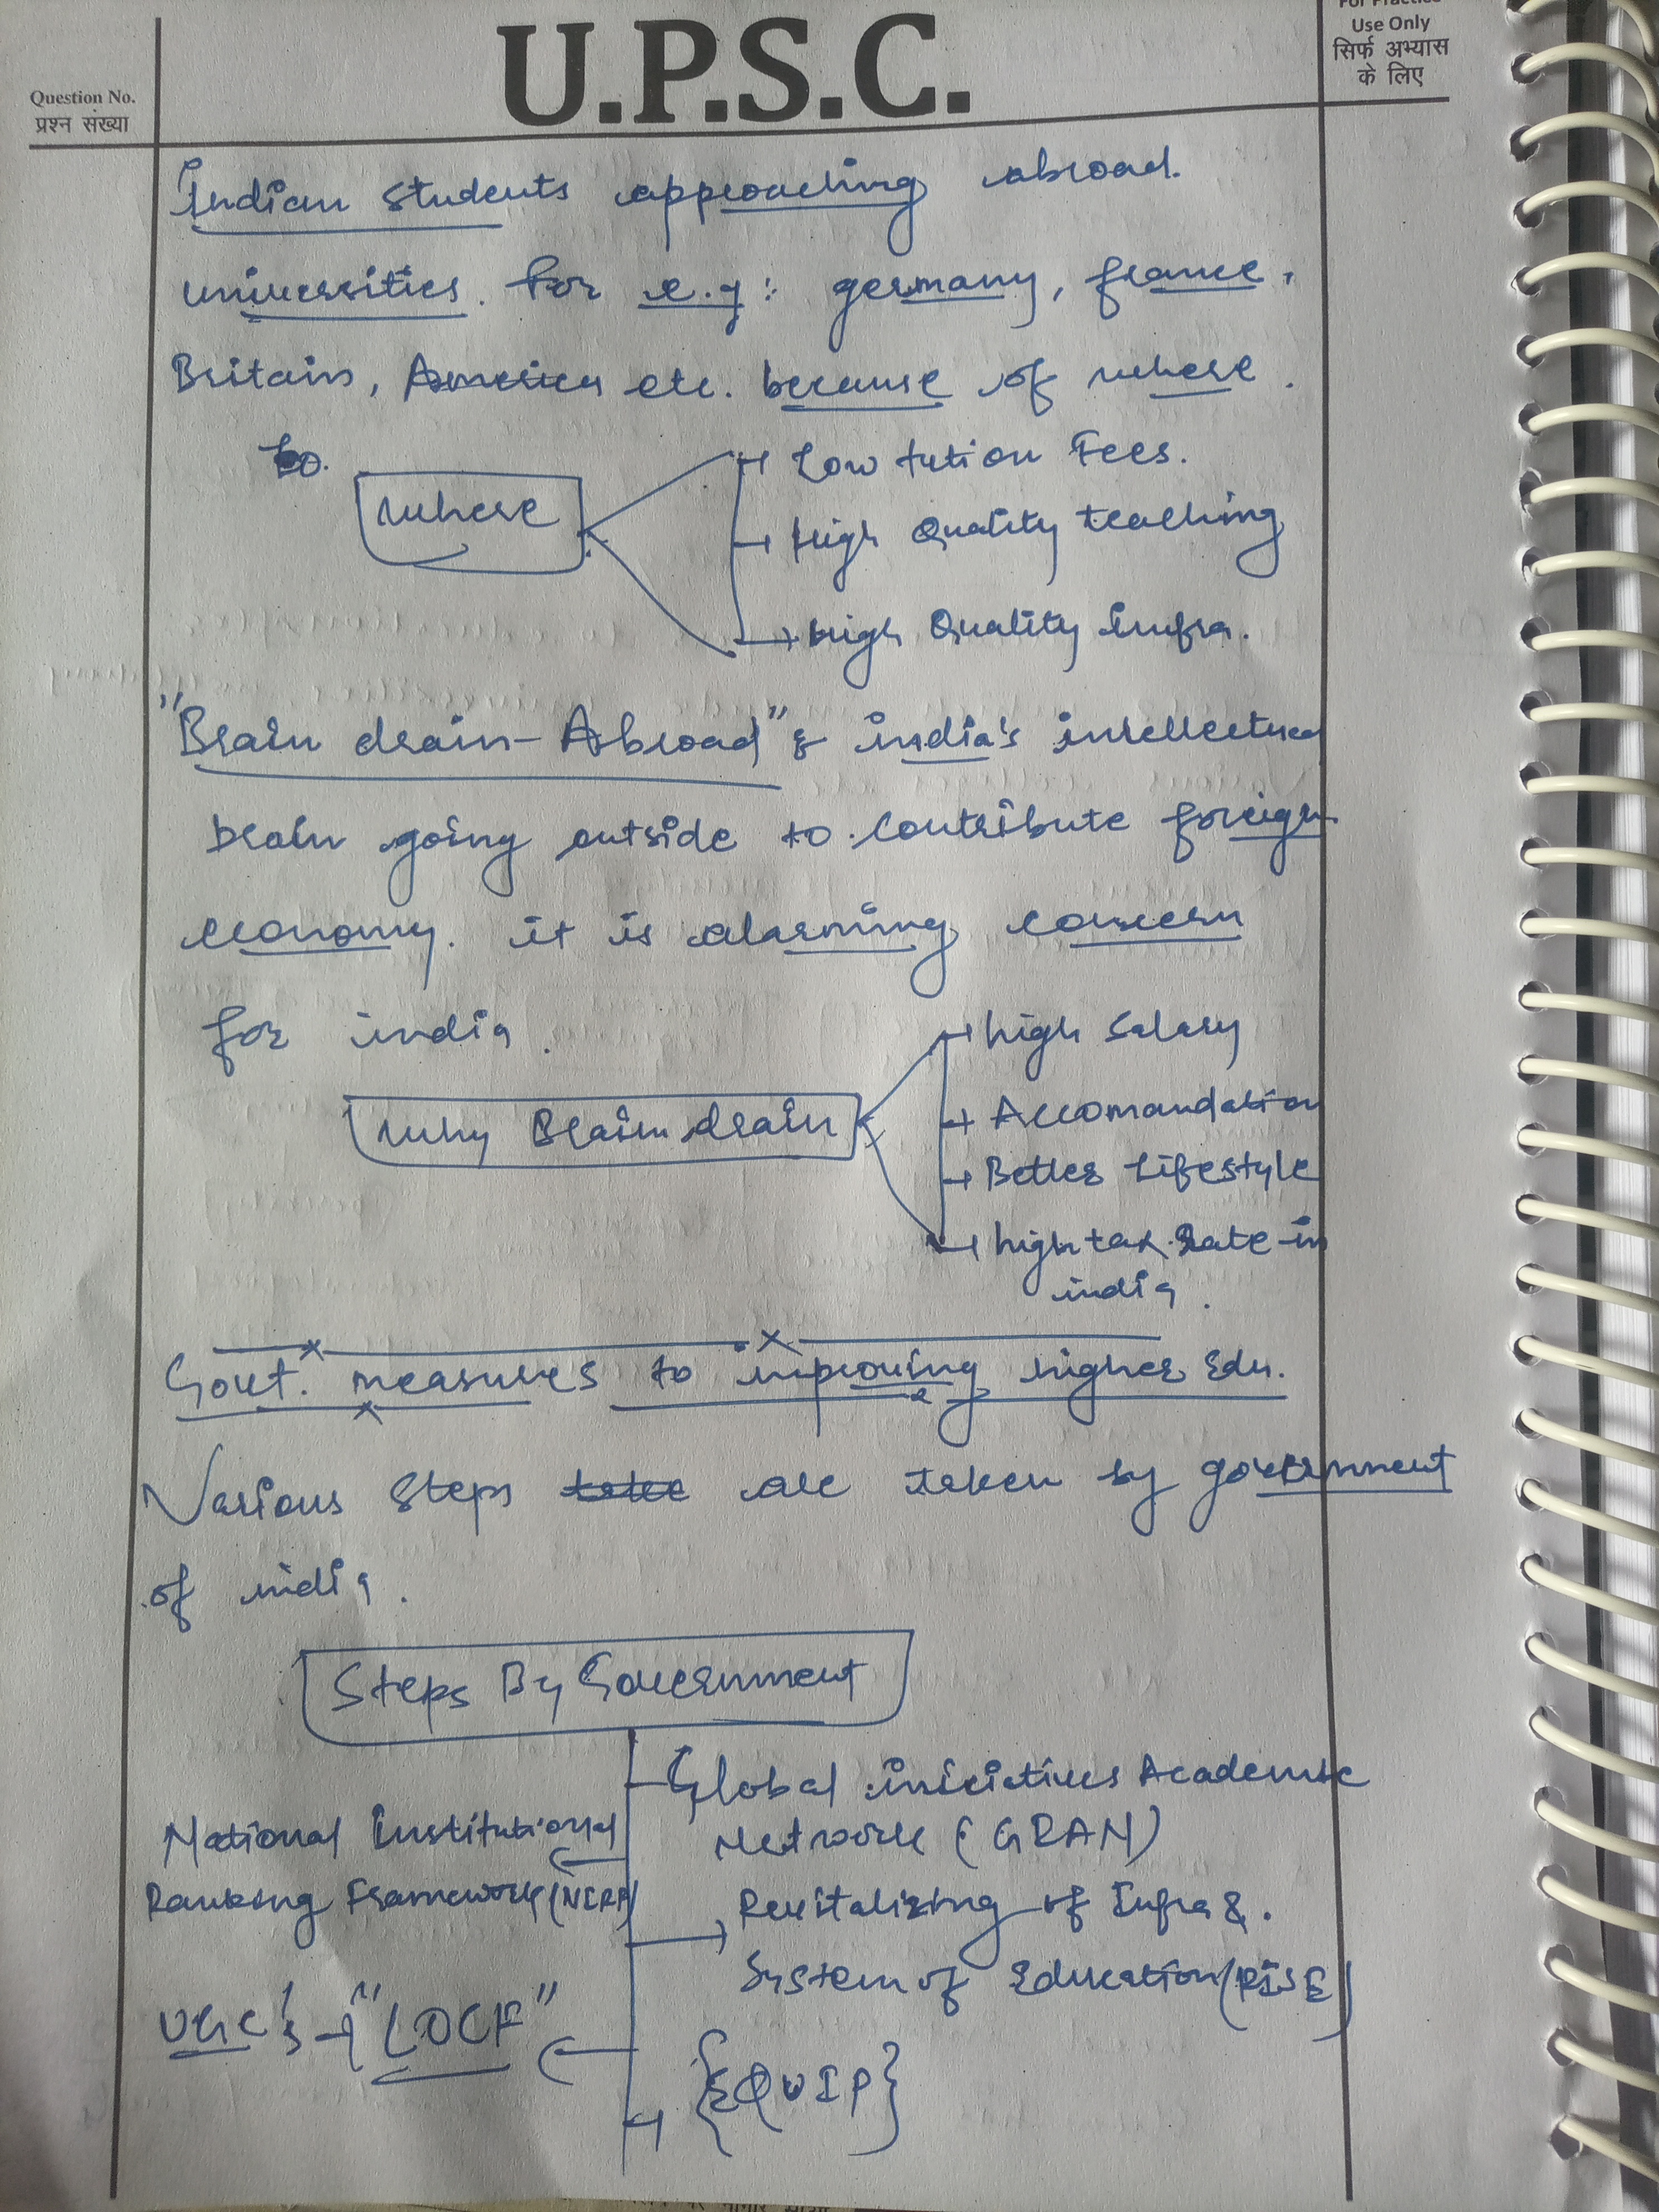 For Practice
Use Only
सिर्फ अभ्यास
के लिए
U.P.S.C.
Question No.
प्रश्न संख्या
Indian Students approaching abroad.
universities. For e.g: germany, france,
Britain, America etc. because of where.
to.
where
Low tution Fees.
High Quality teaching
High Quality infra.
"Brain drain-Abroad" & india's intellectual
brain going outside to contribute foreign
economy. it is alarming concern
for india.
Why Brain drain
high Salary
Accomandation
Better Lifestyle
high tax rate in
india.
Govt. measures to improving higher Edu.
Various Steps take are taken by government
of india.
Steps By Government
Global iniciatives Academic
Network (GRAN)
National Institutional
Ranking Framework (NIRF)
Revitalizing of Infra &.
System of Education (RISE)
UGC's → "LOCF"
{EQUIP}